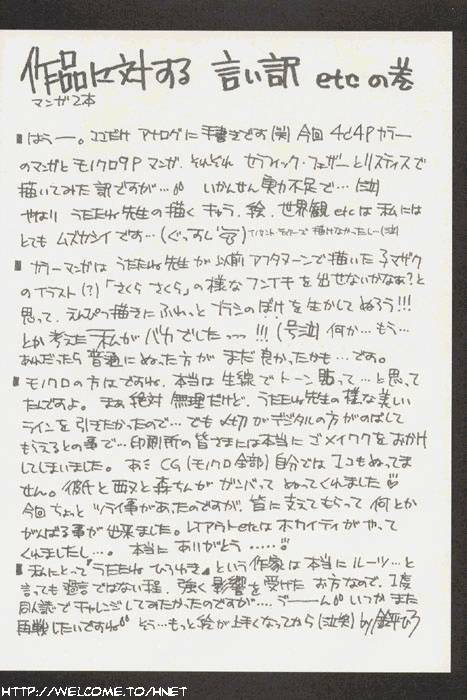 作品に対する 言い訳 etcの巻
マンガ2本
■はうー。ココだけ アナログに 手書きです(笑) 今回 4c4P カラー
のマンガと モノクロ9P マンガ、それぞれ セラフィック・フェザーとリスティスで
描いてみた 訳ですが…。 いかんせん 実力不足で…(泣)
やはり うたたね先生の描く キャラ、絵、世界観 etcは 私には
とても ムズカシイです…(ぐっすし) 描けなかったしー(泣)
■カラーマンガは うたたね先生が 以前 アフタヌーンで 描いた 子マザク
のイラスト(?)「さくら さくら」の様な フンイキ を出せないかなぁ?と
思って、えんぴつ描きに ふわっと ブラシのぼけを 生かして ぬろう!!!
とか 考えた 私が バカでしたっっ!!! (号泣) 何か…もう…
あれだったら 普通に ぬった 方が まだ 良かったかも…です。
■モノクロの方はですね、本当は 生線で トーン 貼って…と思って
たんですよ。まぁ 絶対 無理だけど、うたたね先生の 様な 美しい
ラインを 引きたかったので…でも〆切が デジタルの方がのばして
もらえるとの事で…印刷所の 皆さまには本当に ゴメイワクを おかけ
してしまいました。あと CG (モノクロ全部) 自分では 1コもぬってま
せん。彼氏と 西又と 森ちんが ガンバって ぬってくれました
今回 ちょっと ツライ事が あったのですが、皆に 支えてもらって 何とか
がんばる事が 出来ました。レイアウトetcは ホカイティが やって
くれましたし…。本当に ありがとう……
■私にとって『うたたね ひろゆき』という 作家は 本当に ルーツ…と
言っても 過言ではない程、強く 影響を 受けた お方なので、1度
同人誌で チャレンジしてみたかったのですが…。うーーん いつか また
再戦したいですね そう…もっと絵が 上手くなってから (泣笑) by
HTTP://WELCOME.TO/HNET